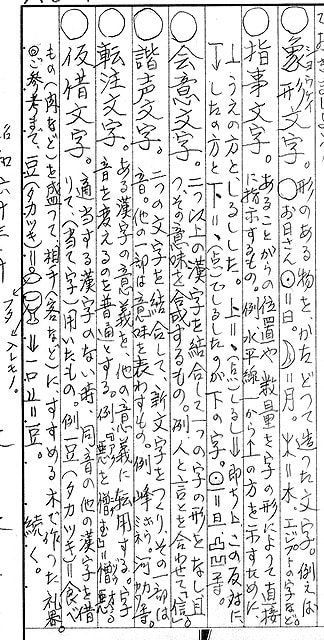 象形文字。形のある物を、かたどって造った文字。例えば
お日さん⊙=日。☽=月。木=木 エジプトの字など。
指事文字。あることがらの位置や、数量を字の形によって直接
に指示するもの。例 水平線一から上の方を示すために
⊥うえの方としるしした。上=、(点)しるし⇒即ち上 この反対に、
したの方と下=、(点)でしるしたのが下の字。⊙=日 凸凹等。
会意文字。二つ以上の漢字を結合して一つの字の形となし、且
つ、その意味を合成するもの。例 人と言とを合わせて「信」。
諧声文字。二つの文字を結合して、新文字をつくり、その一部は
音。他の一部は意味を表わすもの。例 峰 河 等。
転注文字。ある漢字の意義を、他の意義に転用する。字
音を変えるのを普通とする。例 悪を憎む=憎悪
仮借文字。適当する漢字のない時、同音の他の漢字を借
りて(当て字)用いたもの。例 豆(タカツキ)食べ
もの(肉など)を盛って相手(客など)にすすめる木で作った礼器。
◎ご参考まで、豆(タカツキ)= 豆=豆。 続く。
フタ 入レモノ。
昭和六十三年